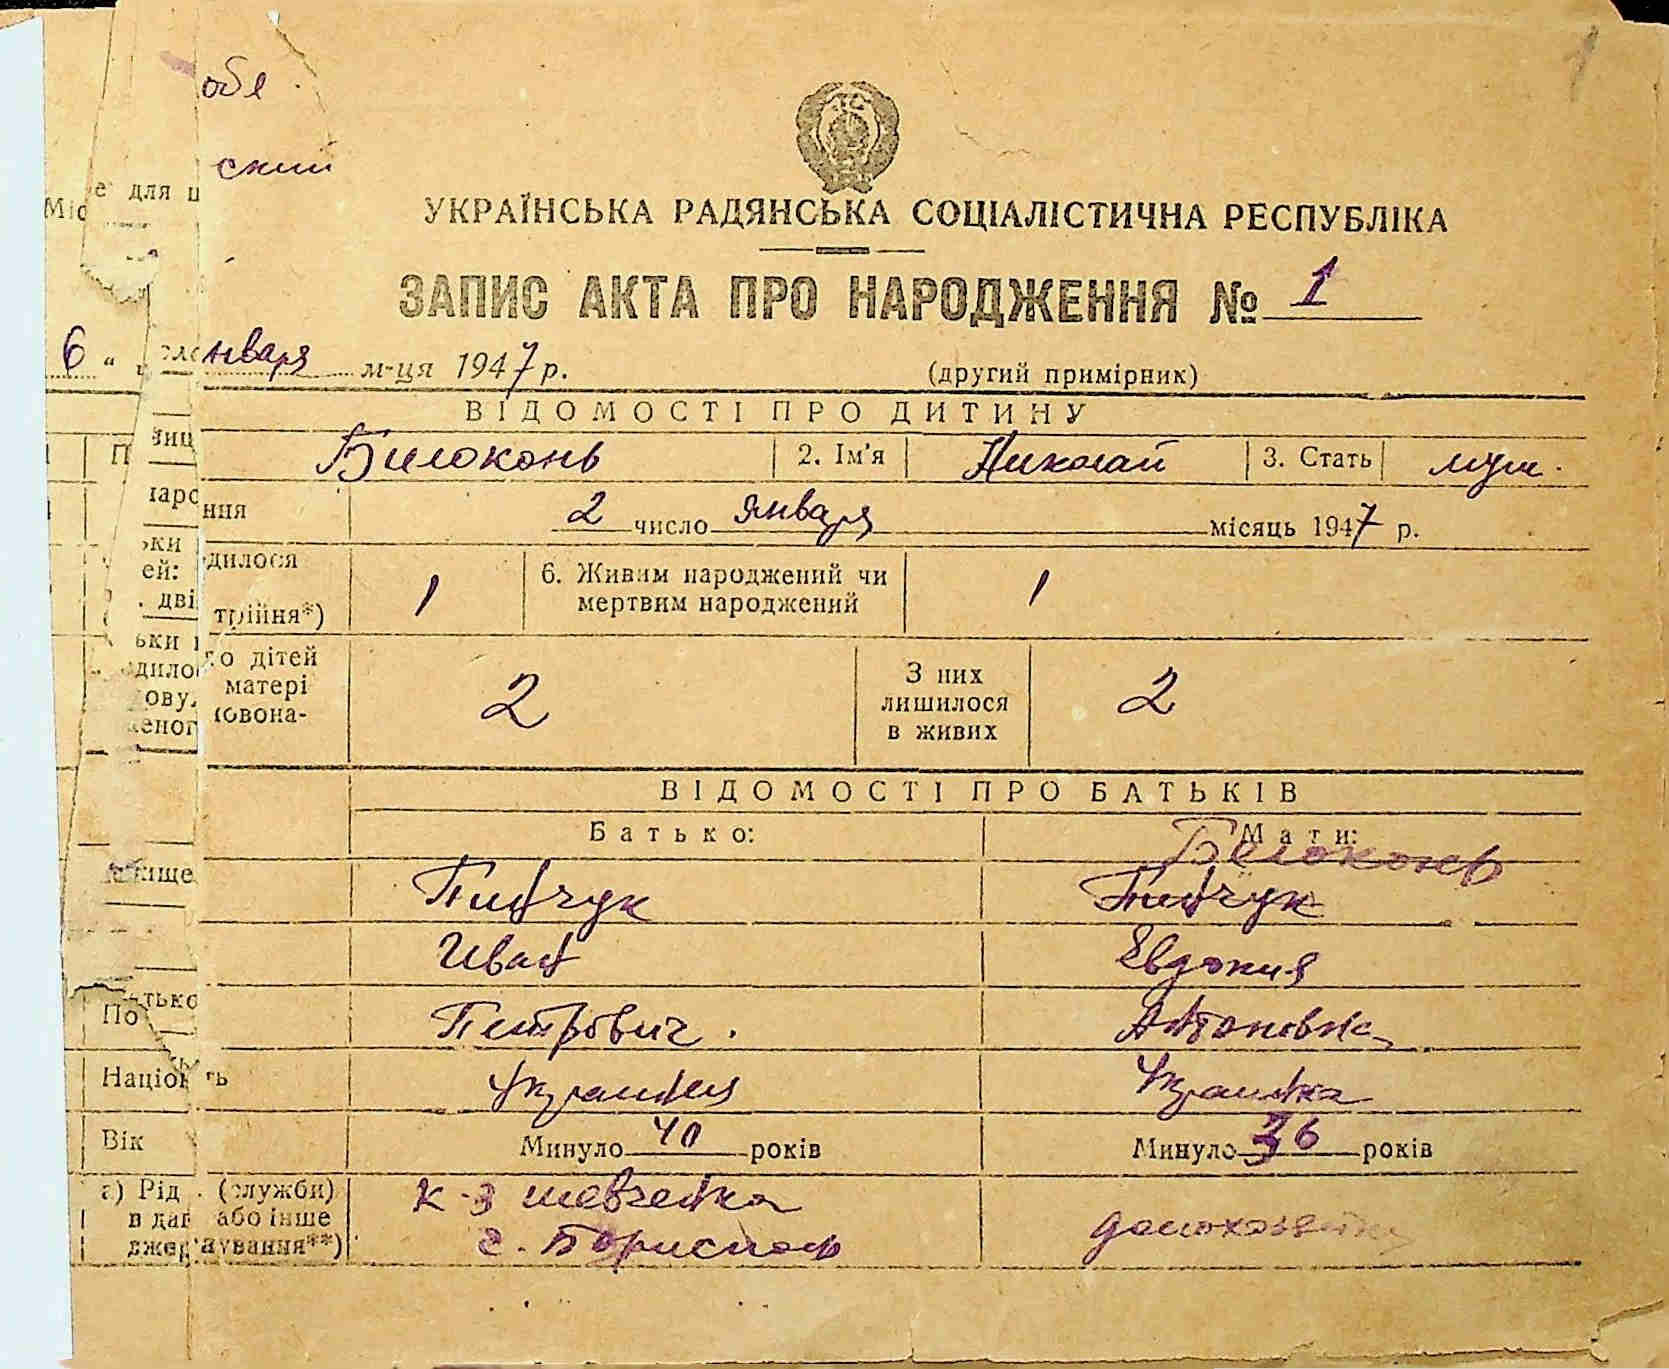 обл
ский
е для ц
Міс
УКРАЇНСЬКА РАДЯНСЬКА СОЦІАЛІСТИЧНА РЕСПУБЛІКА
ЗАПИС АКТА ПРО НАРОДЖЕННЯ № 1
6 " января м-ця 1947 р.
(другий примірник)
ВІДОМОСТІ ПРО ДИТИНУ
Билоконь 2. Ім'я Николай 3. Стать муж.
ння 2 число января місяць 1947 р.
дилося
трійня*) 1 6. Живим народжений чи мертвим народжений 1
го дітей
матері
ковона- 2 З них лишилося в живих 2
ВІДОМОСТІ ПРО БАТЬКІВ
Батько: Мати:
Билоконь
ище Пинчук Пинчук
Иван Евдокия
По тько Петрович. Антоновна
Націон ть Украинец Украинка
Вік Минуло 40 років Минуло 36 років
а) Рід (служби)
в дан або інше
джер ування**) к-з шевченка
с. Борисполь домохозяйка